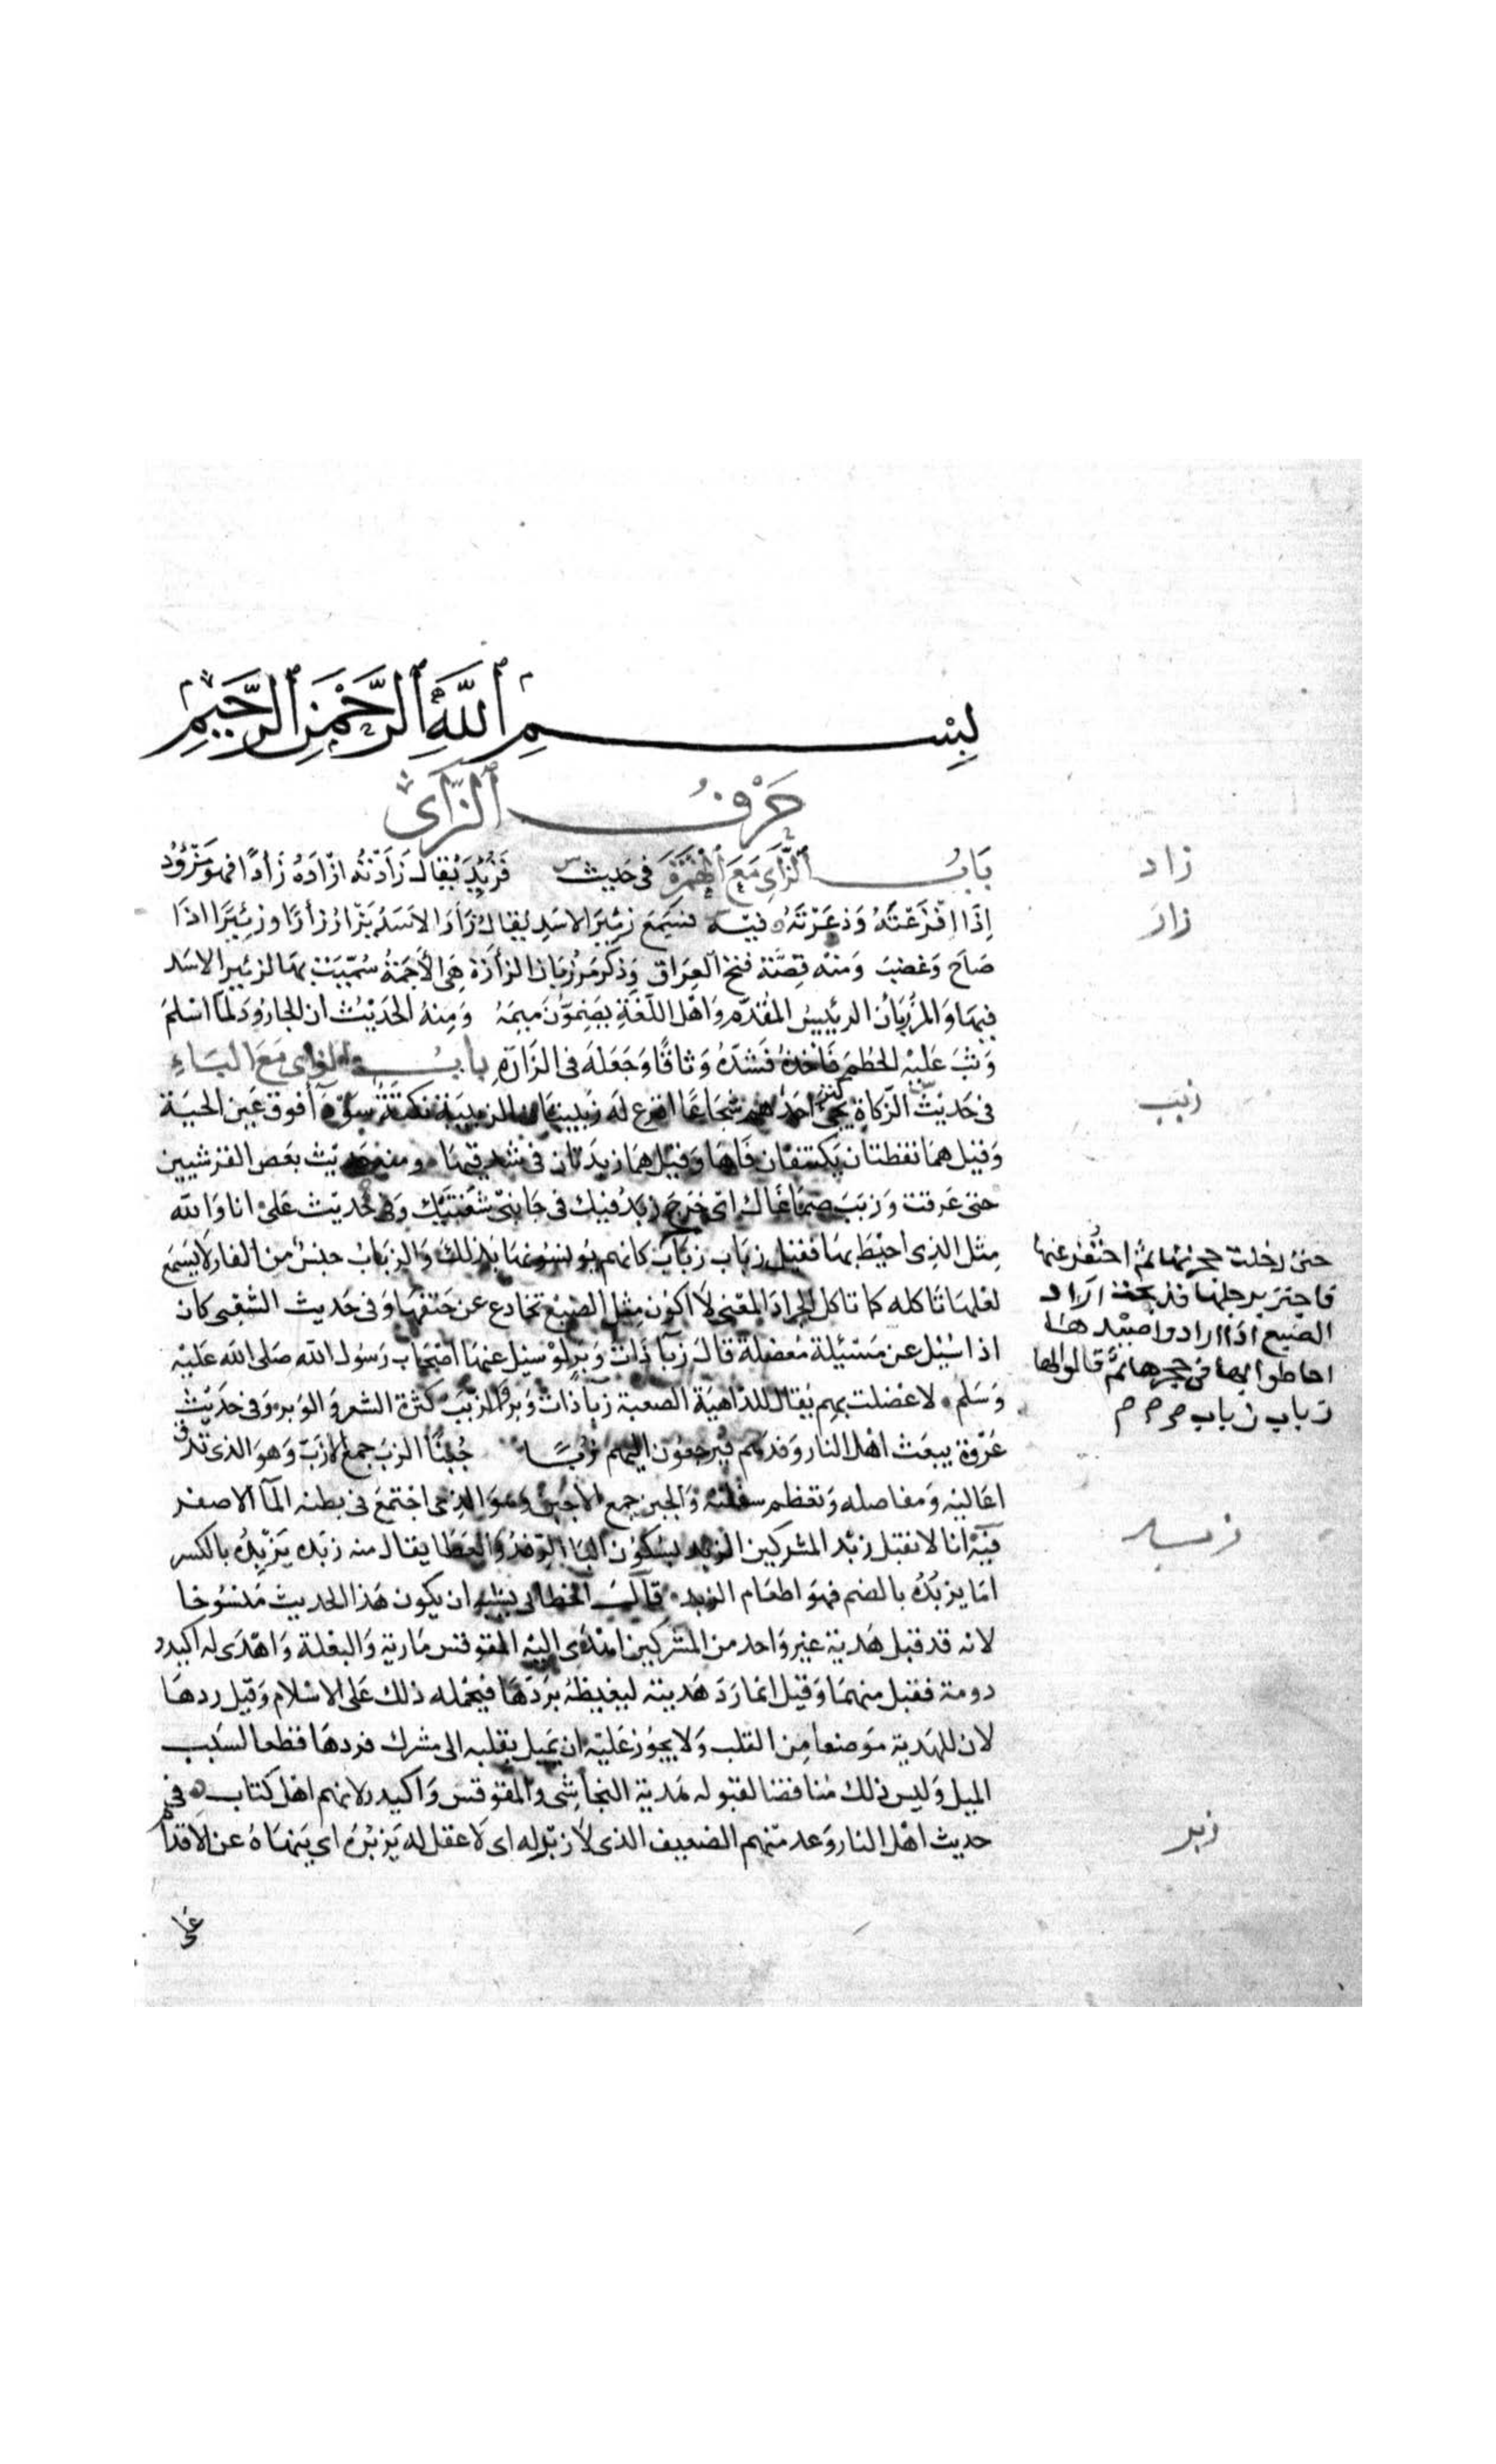 بِسْمِ ٱللَّهِ ٱلرَّحْمَنِ ٱلرَّحِيمِ
حَرْفُ ٱلزَّاىِ
بَابُ ٱلزَّاىِ مَعَ ٱلْهَمْزَةِ فى حَديث فَزُئِدَ يُقال زَأدْتُه ازْأدَهُ زَأدًا فهو مَزْؤُد
زاد
اِذَا افْزَعْتَهُ وَذعَرْتَهُ فيه فسَمِعَ زئيرَ الاسَدِ يُقال زَأرَ الاسَدُ يَزْأرُ زأرًا وزئِيرًا اذا
زار
صَاحَ وَغضبَ وَمنه قصّة فتح العِرَاق وَذكر مَرْزبَان الزأرَة هِىَ الأجَمَةُ سُمّيَت بهَا لزئير الاسَد
فيهَا وَالمَرْزبَان الرئيس المُقدّم وَاهْل اللغَةِ يَضُمّونَ ميمَهُ وَمِنهُ الحَدِيْث ان الجارُودَ لمّا اسْلمَ
وَثبَ عَليْهِ الحُطمَ فَأخذهُ فَشدّهُ وَثاقًا وَجَعَلهُ فى الزَارَةِ بابُ الزاى مَعَ البَاءِ
فى حَديث الزكاة يَجئ كنز احَدهم شجَاعًا اقرَع لهُ زبيبتان الزبيبَة نكتَة سَوْدَآ فوق عَين الحيّة
زبَب
وَقيل همَا نقطتان يَكتنفان فَاهَا وَقيل همَا زبدَتان فى شدقيهَا ومنه حَديث بَعض القرشيين
حتى عَرقت وَزبّبَ صمَاغَاك اى خَرجَ زبَدُ فيك فى جَانبَىْ شفَتَيْك وَفى حَديث عَلىّ انا وَالله
مثل الذى احيْط بهَا فقيْل زبَاب زبَاب كانهم يؤنسُونهَا بذلك وَالزبَابُ جنسٌ من الفار لا يَسْمَع
حتى دخلت جحرَها ثم احتُفر عنها
فاجترّ برجلها فذبحت اراد
الضبع اذا ارادوا صيْدهَا
احاطوا بها فى جحرها ثمّ قالوا لها
زباب زباب
لعَلهَا تاكله كما تاكل الجراد المعنى لا اكون مثل الضبُع تخادع عن حَتفهَا وَفى حَديث الشعْبى كان
اذا سُئِل عن مَسْئلة مُعضلة قالَ زبّآ ذات وَبَر لوْ سئل عنهَا اصْحَاب رَسُول الله صَلى الله عَليْه
وَسَلم لاعْضلت بهم يقال للدّاهيَة الصعبة زبّآ ذات وَبَر وَالزبَبَ كثرَة الشعر وَالوَبر وَفى حَديْث
عُرْوَة يبعَث اهْل النار وَفدهم فيرجعُون اليهم زُبًّا حُبْنًا الزبّ جمع الازَبّ وَهوَ الذى تَدق
اعَاليْه وَمفاصله وَتعظم سفلته وَالحبن جمع الاحبن وَهوَ الذى اجتمَعَ فى بطنه المآ الاصفر
فيه انا لا نقبل زبْد المشركين الزبْد بسكون البا الرّفدُ وَالعَطَا يقال منه زبَده يَزْبدُه بالكسر
زبد
امّا يزبُدُه بالضم فهو اطعَام الزبد قالَ الخطابى يشبه ان يكون هَذا الحَديث مَنسُوخا
لانه قد قبل هَديّة غير وَاحد من المشركين اهْدَى اليْه المقوقس مَارية وَالبغلة وَاهْدَى له اكيدر
دومة فقبل منهمَا وَقيل انما رَدّ هَديته ليغيظهُ برَدّهَا فيَحْمله ذلك عَلى الاسْلام وَقيل ردهَا
لان للهديّة مَوضعا مِن القلب وَلا يجوُز عَليْه ان يَميل بقلبه الى مشرك فردهَا قطعا لسَبب
الميل وَليس ذلك مُناقضا لقبوله هَدية النجاشى والمقوقس وَاكيدر لانهم اهْل كتاب فى
حديث اهْل النار وَعد منهم الضعيف الذى لا زبْر له اى لا عقل له يَزبُرُه اى يَنهَاهُ عن الاقدام
زبر
عَلى